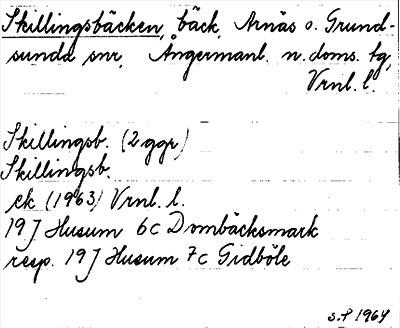 Skillingsbäcken, bäck, Arnäs o. Grund-
sunda snr, Ångermanl. n. doms. tg,
Vrnl. l.
Skillingsb. (2 ggr)
Skillingsb.
ek (1963) Vrnl. l.
19 J Husum 6c Dombäcksmark
resp. 19 J Husum 7c Gidböle
S.F 1964